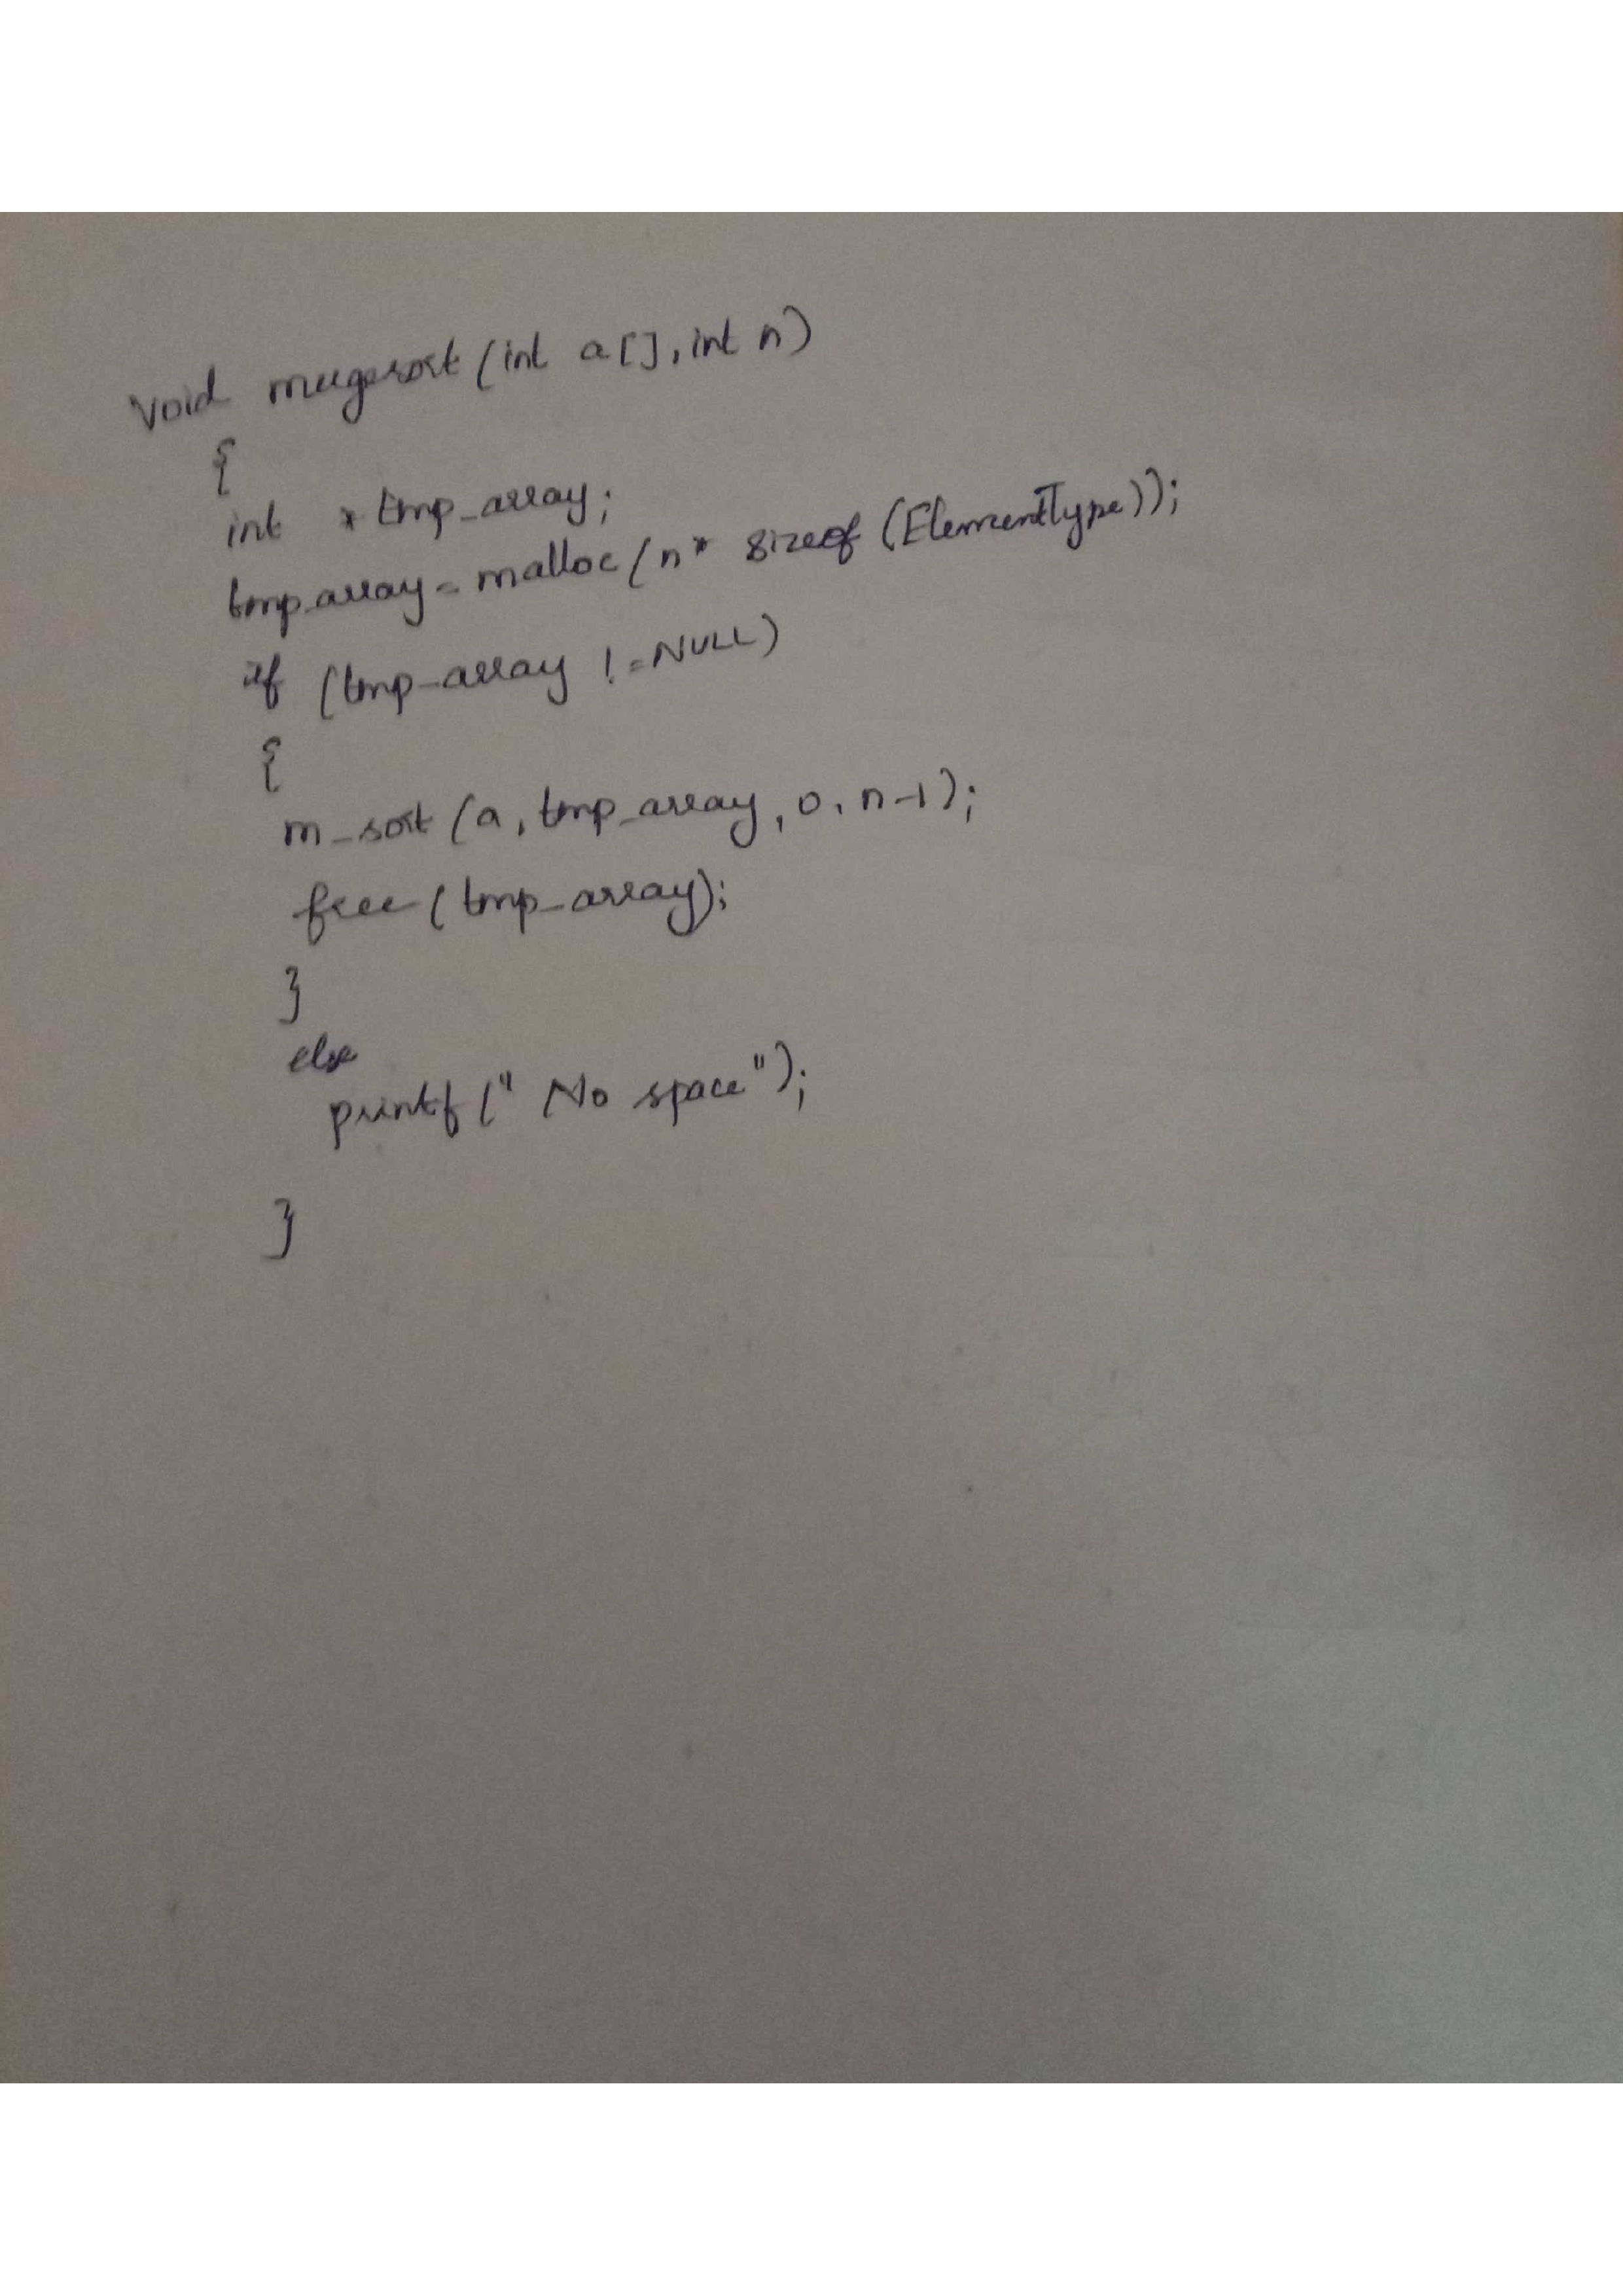 void mergesort (int a[], int n)
{
int * tmp_array;
tmp_array = malloc (n* sizeof (ElementType));
if (tmp_array != NULL)
{
m_sort (a, tmp_array, 0, n-1);
free ( tmp_array);
}
else
printf (" No space");
}